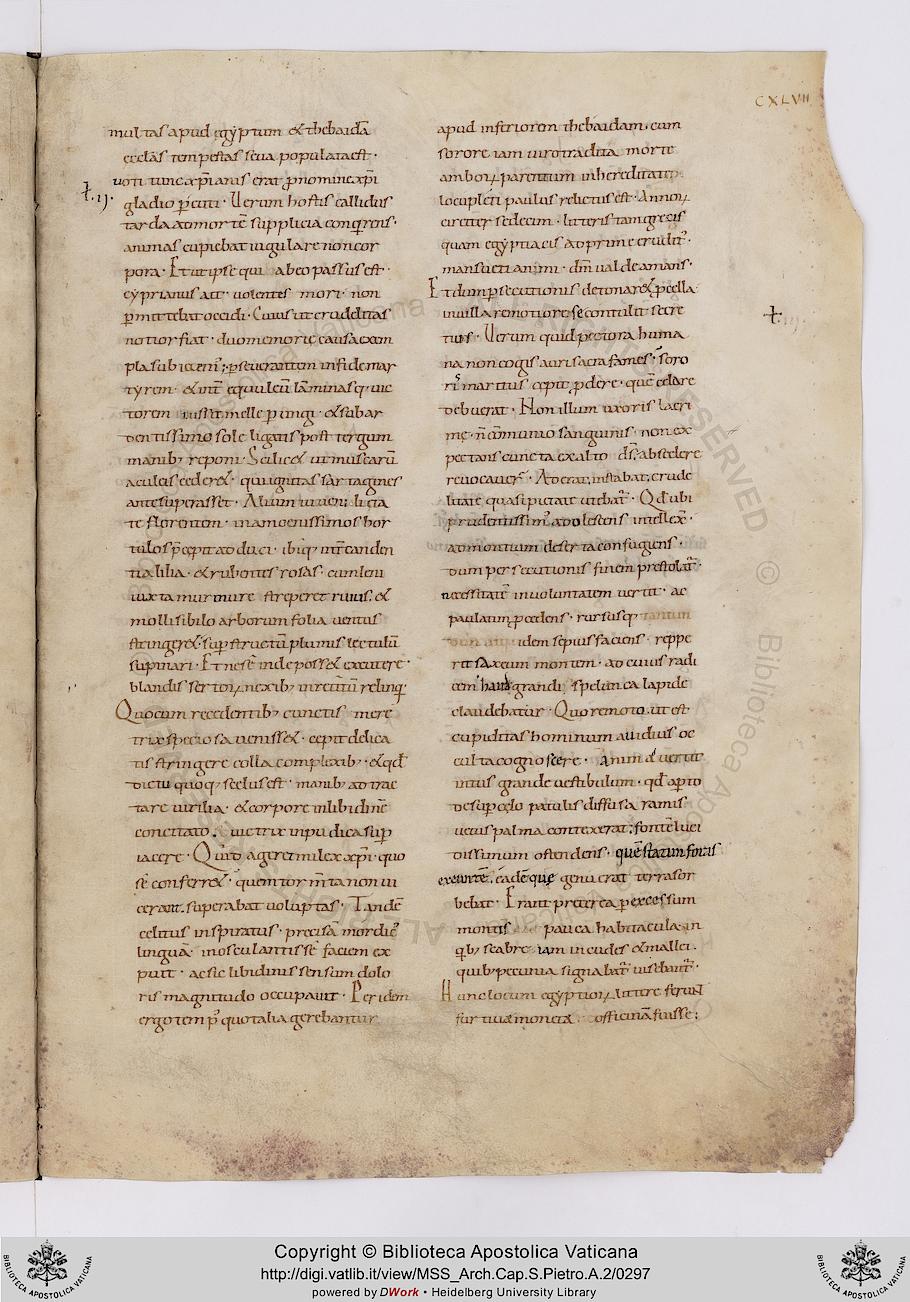 CXLVII
multas apud egyptum & thebaidā
ecclās tempestas seua populata est ·
uoti tunc xp̄ianis erat ꝓ nomine xp̄i
ł. ıȷ.
gladio p̄cuti · Uerum hostis callidus
tarda ad mortē supplicia conqrens ·
animas cupiebat iugulare non cor
pora · Et ut ipse qui ab eo passus est ·
cyprianus ait · uolentes mori · non
ꝑmittebat occidi · Cuius ut crudelitas
notior fiat · duo memorie causa exem
pla subiecim; ꝑseuerantem in fide mar
tyrem · & int̄ equuleū lāminasq; uic
torem iussit melle ꝑungi · & sub ar
dentissimo sole ligatis post tergum
manib; reponi · Scilic& ut muscarū
aculeis ceder& · qui ignitas sartagines
ante superasset · Alium iuueni li &a
te florentem · in amoenissimos hor
tulos p̄cepit adduci · ibiq; int̄ canden
tia lilia · & rubentes rosas · cum leni
iuxta murmure streperet riuus · &
molli sibilo arborum folia uentus
stringer& · suꝑ structū plumis lectulū
supinari · Et ne sē inde poss& excutere ·
blandis sertoꝝ nexib; inretitū relinq; ·
Quo cum recedentib; cunctis mere
trix speciosa ueniss& · cepit delica
tis stringere colla complexib; · & qđ
dictu quoq; scelus est · manib; adtrac
tare uirilia · & corpore in libidinē
concitato · uictrix inpudica suꝑ
iacere · Quid ageret milex xp̄i · quo
sē conferr& · quem tormīta non ui
cerant · superabat uoluptas · Tandē
celitus inspiratus · precisā mordic;
linguā · in osculantis sē faciem ex
puit · ac sic libidinis sensum dolo
ris magnitudo occupauit · Per idem
ergo tem p̄ quo talia gerebantur
apud inferiorem thebaidam · cum
sorore iam uiro tradita morte
amboꝝ parentum in hereditate
locupleti paulus relictus est · Annoꝝ
circiter sedecim · litteris tam grecis
quam egyptiacis adprime erudit; ·
mansueti animi · dm̄ ualde amans ·
Et dum ꝑsecutionis detonar& ꝓcella
in uilla remotiore se contulit secre
tius · Uerum quid pectora huma
ł. ııȷ.
na non cogis auri sacra fames · soro
ris maritus cepit ꝓdere · quē celare
debuerat · Non illum uxoris lacri
me · n̄ cōmunio sanguinis · non ex
pectans cuncta ex alto ds̄ · ab scelere
reuocauer̄ · Aderat · instabat · crude
litate quasi pietate utebat̄ · Qđ ubi
prudentissim; adolescens intellex̄ ·
ad montium deserta confugiens ·
dum persecutionis finem prestolat̄ ·
necessitatē in uoluntatem uertit · ac
paulatim ꝓcedens · rursusq; tantum
dem atq; idem sepius faciens · reppe
rit saxeum montem · ad cuius radi
cem haud grandi spelunca lapide
claudebatur · Quo remoto · ut est
cupiditas hominum auidius oc
culta cognoscere · Animaduertit
intus grande uestibulum · qđ aꝑto
desuꝑ cęlo patulis diffusa ramis
uetus palma contexerat · fontē luci
dissimum ostendens · quē statim foris
exeuntē · eadē quę genuerat terra sor
bebat · Erant preterea ꝑ excessum
montis pauca habitacula in
qb; scabre iam incudes & mallei ·
quib; pecunia signabat̄ uisebant̄ ·
Hunc locum egyptioꝝ littere ferunt
furtiuā monetā officinā fuisse ;
Copyright © Biblioteca Apostolica Vaticana
http://digi.vatlib.it/view/MSS_Arch.Cap.S.Pietro.A.2/0297
powered by DWork • Heidelberg University Library